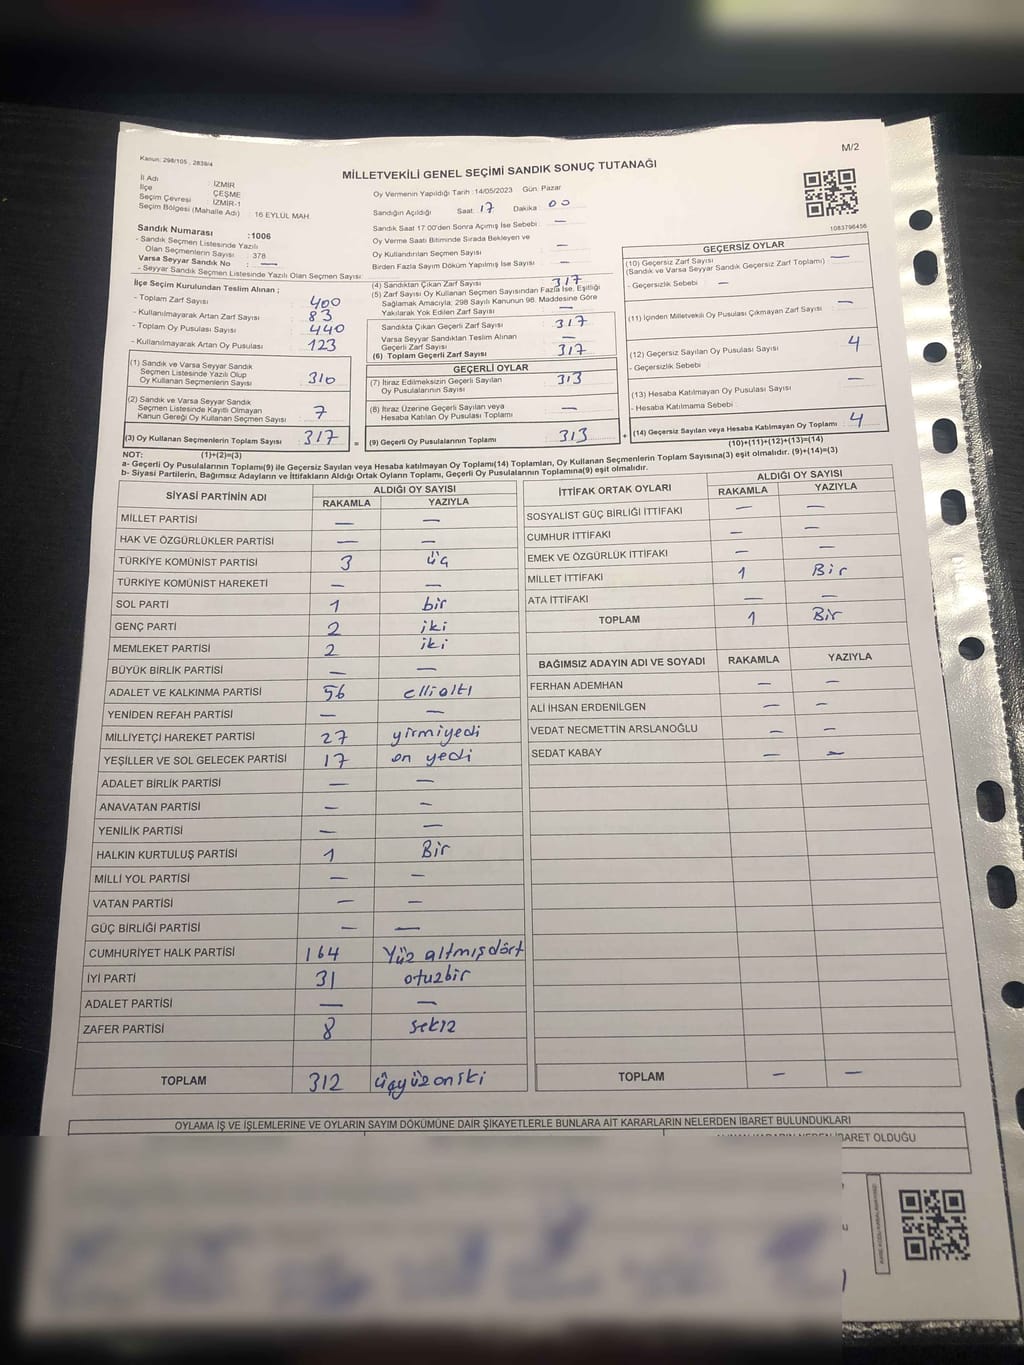 Kanun: 298/105 , 2839/4
M/2
MİLLETVEKİLİ GENEL SEÇİMİ SANDIK SONUÇ TUTANAĞI
İl Adı : İZMİR
İlçe : ÇEŞME
Seçim Çevresi : İZMİR-1
Seçim Bölgesi (Mahalle Adı) : 16 EYLÜL MAH.
Sandık Numarası :1006
- Sandık Seçmen Listesinde Yazılı
Olan Seçmenlerin Sayısı : 378
Varsa Seyyar Sandık No : —
- Seyyar Sandık Seçmen Listesinde Yazılı Olan Seçmen Sayısı:
Oy Vermenin Yapıldığı Tarih :14/05/2023 Gün: Pazar
Sandığın Açıldığı Saat: 17 Dakika : 00
Sandık Saat 17.00'den Sonra Açımış İse Sebebi : —
Oy Verme Saati Bitiminde Sırada Bekleyen ve
Oy Kullandırılan Seçmen Sayısı : —
Birden Fazla Sayım Döküm Yapılmış İse Sayısı : —
1083796456
İlçe Seçim Kurulundan Teslim Alınan ;
- Toplam Zarf Sayısı : 400
- Kullanılmayarak Artan Zarf Sayısı : 83
- Toplam Oy Pusulası Sayısı : 440
- Kullanılmayarak Artan Oy Pusulası : 123
(1) Sandık ve Varsa Seyyar Sandık
Seçmen Listesinde Yazılı Olup
Oy Kullanan Seçmenlerin Sayısı : 310
(2) Sandık ve Varsa Seyyar Sandık
Seçmen Listesinde Kayıtlı Olmayan
Kanun Gereği Oy Kullanan Seçmen Sayısı : 7
(3) Oy Kullanan Seçmenlerin Toplam Sayısı : 317
(1)+(2)=(3)
(4) Sandıktan Çıkan Zarf Sayısı : 317
(5) Zarf Sayısı Oy Kullanan Seçmen Sayısından Fazla İse, Eşitliği
Sağlamak Amacıyla; 298 Sayılı Kanunun 98. Maddesine Göre
Yakılarak Yok Edilen Zarf Sayısı : —
Sandıkta Çıkan Geçerli Zarf Sayısı : 317
Varsa Seyyar Sandıktan Teslim Alınan
Geçerli Zarf Sayısı : —
(6) Toplam Geçerli Zarf Sayısı : 317
GEÇERLİ OYLAR
(7) İtiraz Edilmeksizin Geçerli Sayılan
Oy Pusulalarının Sayısı : 313
(8) İtiraz Üzerine Geçerli Sayılan veya
Hesaba Katılan Oy Pusulası Toplamı : —
= (9) Geçerli Oy Pusulalarının Toplamı : 313
GEÇERSİZ OYLAR
(10) Geçersiz Zarf Sayısı : —
(Sandık ve Varsa Seyyar Sandık Geçersiz Zarf Toplamı)
- Geçersizlik Sebebi : —
(11) İçinden Milletvekili Oy Pusulası Çıkmayan Zarf Sayısı : —
(12) Geçersiz Sayılan Oy Pusulası Sayısı : 4
- Geçersizlik Sebebi :
(13) Hesaba Katılmayan Oy Pusulası Sayısı : —
- Hesaba Katılmama Sebebi :
+ (14) Geçersiz Sayılan veya Hesaba Katılmayan Oy Toplamı : 4
(10)+(11)+(12)+(13)=(14)
NOT:
a- Geçerli Oy Pusulalarının Toplamı(9) ile Geçersiz Sayılan veya Hesaba katılmayan Oy Toplamı(14) Toplamları, Oy Kullanan Seçmenlerin Toplam Sayısına(3) eşit olmalıdır. (9)+(14)=(3)
b- Siyasi Partilerin, Bağımsız Adayların ve İttifakların Aldığı Ortak Oyların Toplamı, Geçerli Oy Pusulalarının Toplamına(9) eşit olmalıdır.
SİYASİ PARTİNİN ADI ALDIĞI OY SAYISI
RAKAMLA YAZIYLA
MİLLET PARTİSİ — —
HAK VE ÖZGÜRLÜKLER PARTİSİ — —
TÜRKİYE KOMÜNİST PARTİSİ 3 üç
TÜRKİYE KOMÜNİST HAREKETİ — —
SOL PARTİ 1 bir
GENÇ PARTİ 2 iki
MEMLEKET PARTİSİ 2 iki
BÜYÜK BİRLİK PARTİSİ — —
ADALET VE KALKINMA PARTİSİ 56 ellialtı
YENİDEN REFAH PARTİSİ — —
MİLLİYETÇİ HAREKET PARTİSİ 27 yirmiyedi
YEŞİLLER VE SOL GELECEK PARTİSİ 17 on yedi
ADALET BİRLİK PARTİSİ — —
ANAVATAN PARTİSİ — —
YENİLİK PARTİSİ — —
HALKIN KURTULUŞ PARTİSİ 1 Bir
MİLLİ YOL PARTİSİ — —
VATAN PARTİSİ — —
GÜÇ BİRLİĞİ PARTİSİ — —
CUMHURİYET HALK PARTİSİ 164 Yüz altmışdört
İYİ PARTİ 31 otuzbir
ADALET PARTİSİ — —
ZAFER PARTİSİ 8 sekiz
TOPLAM 312 üçyüzoniki
İTTİFAK ORTAK OYLARI ALDIĞI OY SAYISI
RAKAMLA YAZIYLA
SOSYALİST GÜÇ BİRLİĞİ İTTİFAKI — —
CUMHUR İTTİFAKI — —
EMEK VE ÖZGÜRLÜK İTTİFAKI — —
MİLLET İTTİFAKI 1 Bir
ATA İTTİFAKI — —
TOPLAM 1 Bir
BAĞIMSIZ ADAYIN ADI VE SOYADI RAKAMLA YAZIYLA
FERHAN ADEMHAN — —
ALİ İHSAN ERDENİLGEN — —
VEDAT NECMETTİN ARSLANOĞLU — —
SEDAT KABAY — —
TOPLAM — —
OYLAMA İŞ VE İŞLEMLERİNE VE OYLARIN SAYIM DÖKÜMÜNE DAİR ŞİKAYETLERLE BUNLARA AİT KARARLARIN NELERDEN İBARET BULUNDUKLARI
İBARET OLDUĞU